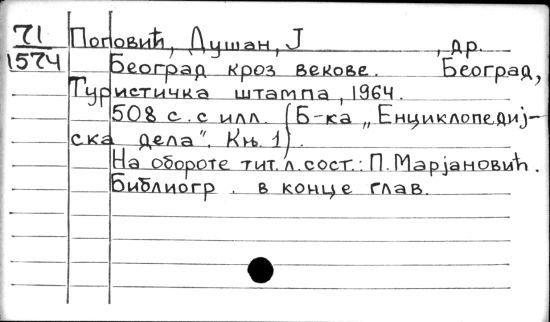 71 Поповић, Душан, Ј , др.
1574 Београд кроз векове. Београд,
Туристичка штампа, 1964.
508 с. с илл. (Б-ка „Енциклопедиј-
ска дела". Књ. 1).
На обороте тит. л. сост.: П. Марјановић.
Библиогр. в конце глав.